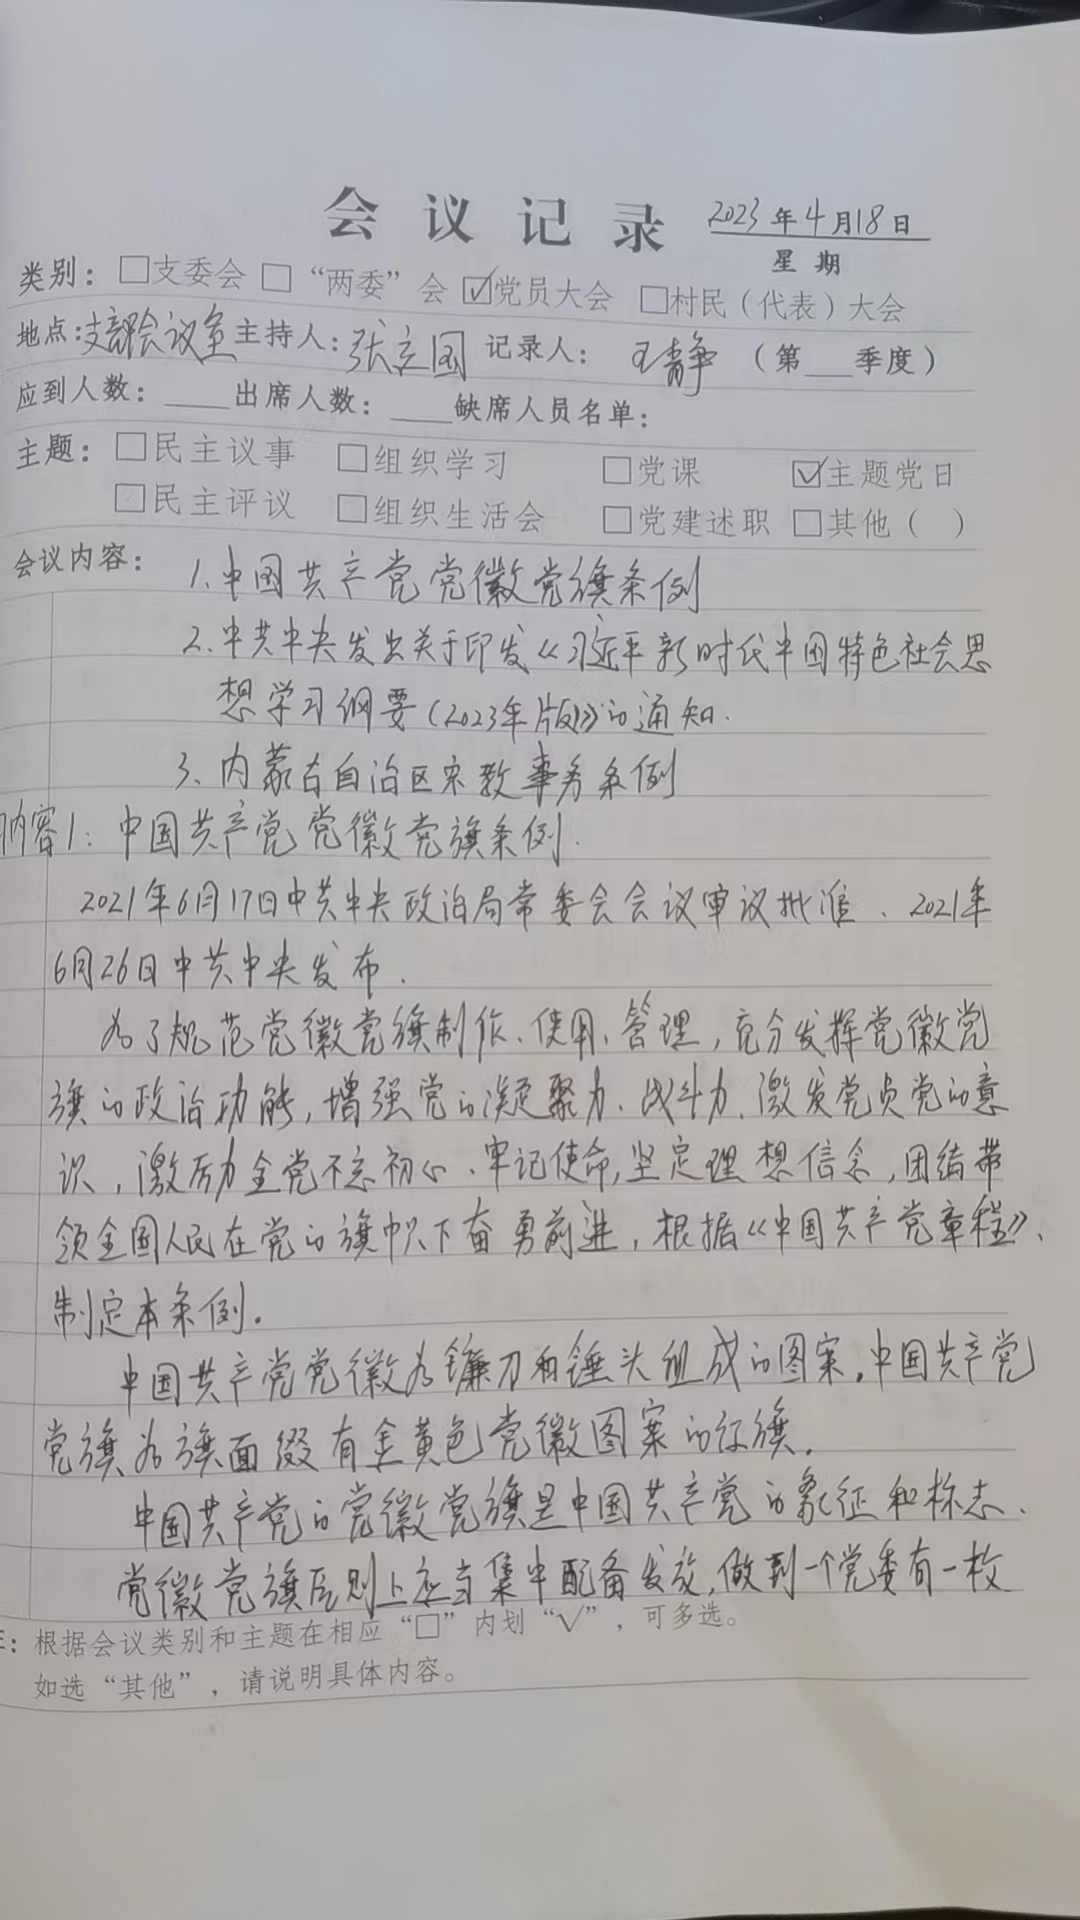 会议记录 2023年4月18日
星期
类别：□支委会 □“两委”会 ☑党员大会 □村民（代表）大会
地点：支部会议室 主持人：张立国 记录人：王静 （第___季度）
应到人数：____出席人数：____缺席人员名单：
主题：□民主议事 □组织学习 □党课 ☑主题党日
□民主评议 □组织生活会 □党建述职 □其他（ ）
会议内容： 1、中国共产党党徽党旗条例
2、中共中央发出关于印发《习近平新时代中国特色社会思
想学习纲要（2023年版）》的通知.
3、内蒙古自治区宗教事务条例
内容1：中国共产党党徽党旗条例.
2021年6月17日中共中央政治局常委会会议审议批准、2021年
6月26日中共中央发布.
为了规范党徽党旗制作、使用、管理，充分发挥党徽党
旗的政治功能，增强党的凝聚力、战斗力、激发党员党的意
识，激励全党不忘初心、牢记使命，坚定理想信念，团结带
领全国人民在党的旗帜下奋勇前进，根据《中国共产党章程》、
制定本条例。
中国共产党党徽为镰刀和锤头组成的图案。中国共产党
党旗为旗面缀有金黄色党徽图案的红旗.
中国共产党的党徽党旗是中国共产党的象征和标志、
党徽党旗原则上应当集中配备发放，做到一个党委有一枚
注：根据会议类别和主题在相应“□”内划“√”，可多选。
如选“其他”，请说明具体内容。